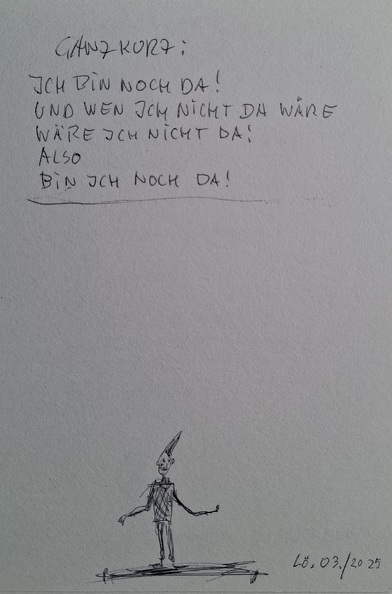 GANZ KURZ:
ICH BIN NOCH DA!
UND WEN ICH NICHT DA WÄRE
WÄRE ICH NICHT DA!
ALSO
BIN ICH NOCH DA!
Lö. 03./2025